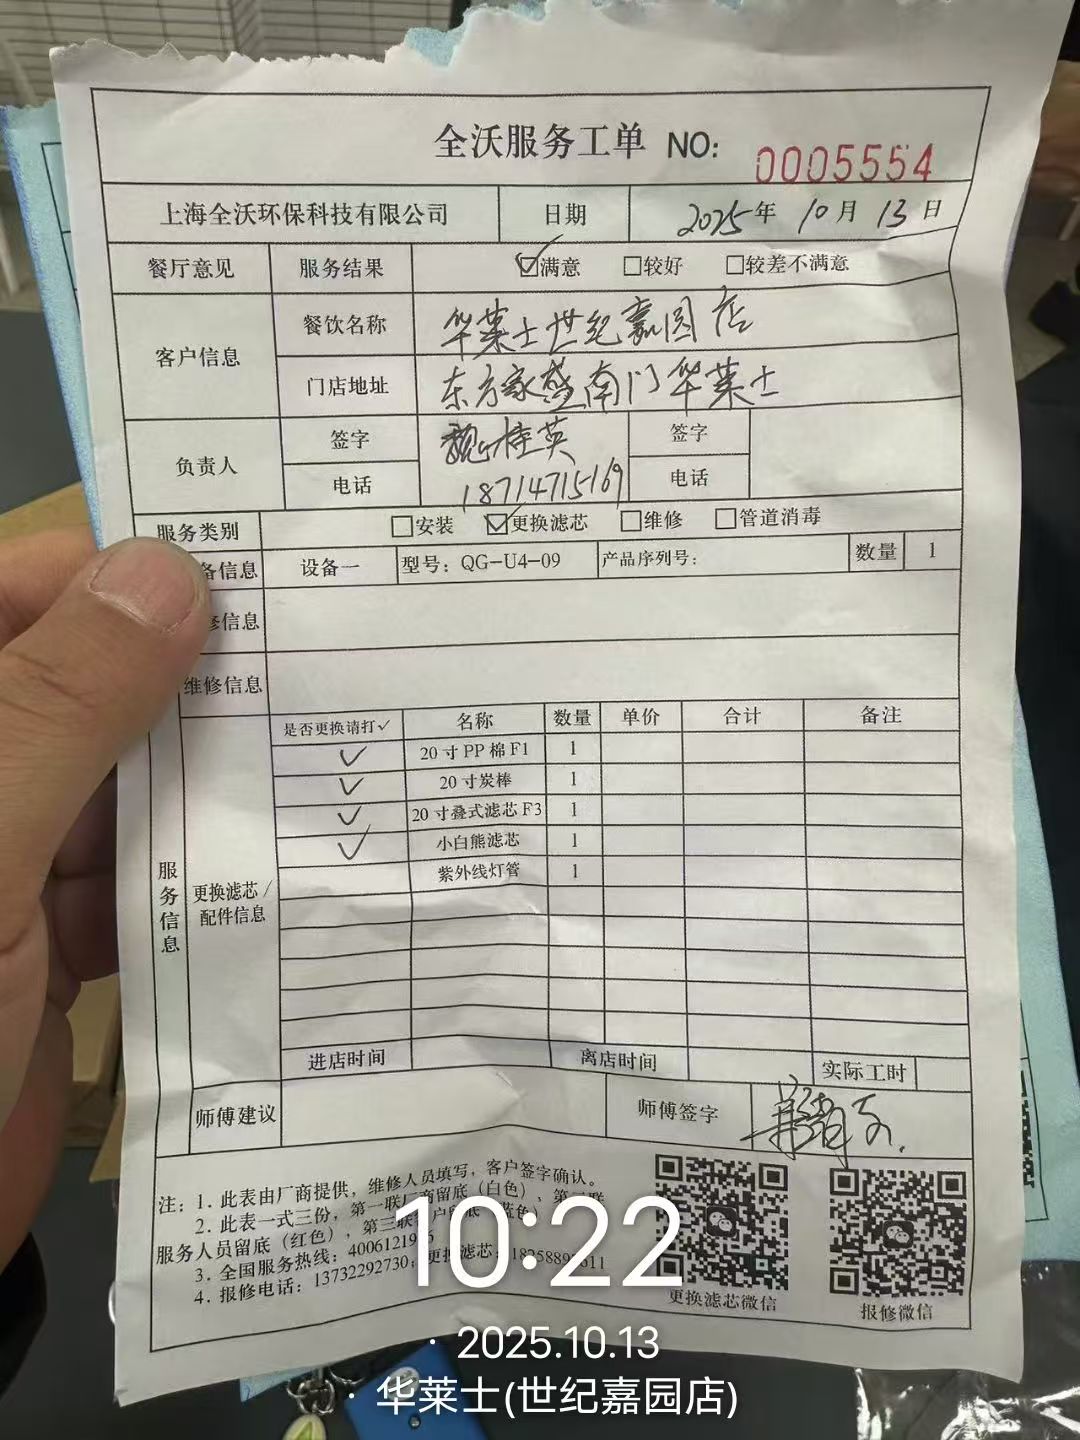 全沃服务工单 NO: 0005554
上海全沃环保科技有限公司 日期 2025年 10月 13日
餐厅意见 服务结果 ☑满意 □较好 □较差不满意
客户信息 餐饮名称 华莱士世纪嘉园店
门店地址 东方家盛南门华莱士
负责人 签字 魏桂英 签字
电话 18714715169 电话
服务类别 □安装 ☑更换滤芯 □维修 □管道消毒
备信息 设备一 型号：QG-U4-09 产品序列号： 数量 1
修信息
维修信息
服务信息
更换滤芯/
配件信息
是否更换请打✓ 名称 数量 单价 合计 备注
✓ 20寸PP棉F1 1
✓ 20寸炭棒 1
✓ 20寸叠式滤芯F3 1
✓ 小白熊滤芯 1
紫外线灯管 1
进店时间 离店时间 实际工时
师傅建议 师傅签字
注：1. 此表由厂商提供，维修人员填写，客户签字确认。
2. 此表一式三份，第一联厂商留底（白色）、第二联
服务人员留底（红色），第三联客户留底（蓝色）
3. 全国服务热线：4006121
4. 报修电话：13732292730; 更换滤芯：
更换滤芯微信
报修微信
10:22
· 2025.10.13
· 华莱士(世纪嘉园店)